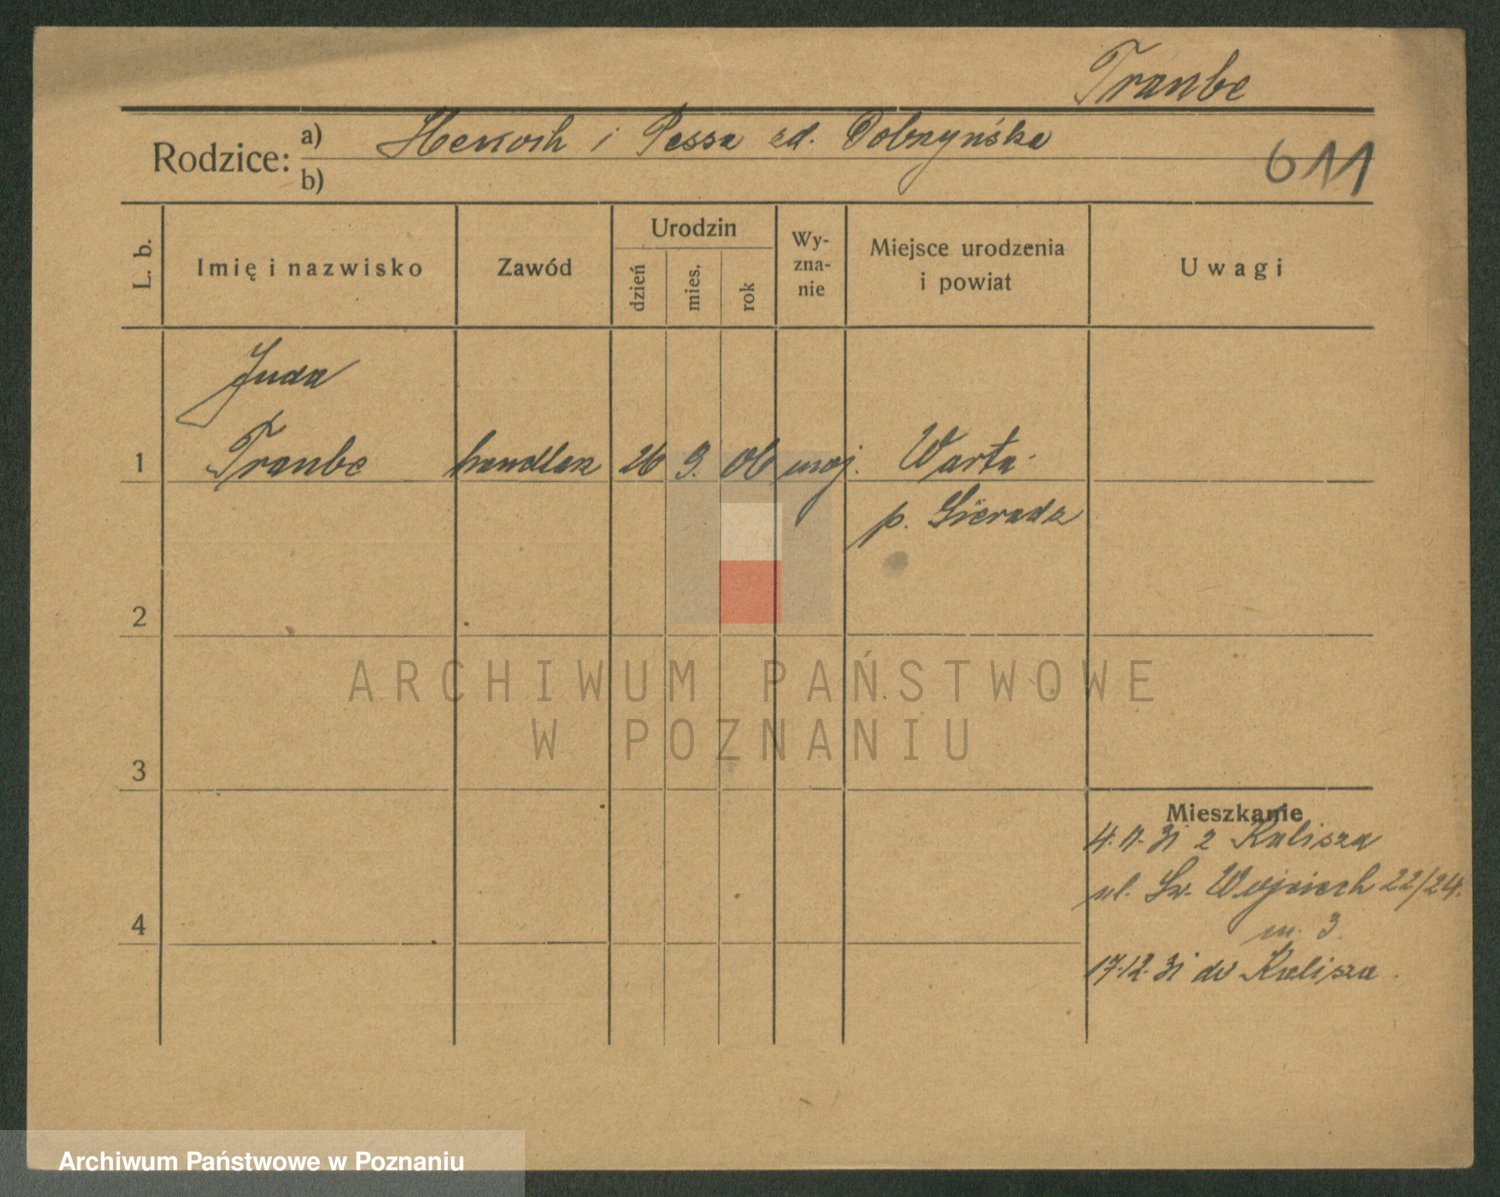 Traube
Rodzice: a) Herszch i Pessa zd. Dobrzyńska
b)
611
L. b.
Imię i nazwisko
Zawód
Urodzin
dzień
mies.
rok
Wy-
zna-
nie
Miejsce urodzenia
i powiat
Uwagi
Juda
1 Traube handlarz 26 9. 06 mojż. Warta
p. Sieradz
2
3
4
Mieszkanie
4.11.31 z Kalisza
ul. Św. Wojciech 22/24.
m. 3
17.12.31 do Kalisza.
ARCHIWUM PAŃSTWOWE
W POZNANIU
Archiwum Państwowe w Poznaniu